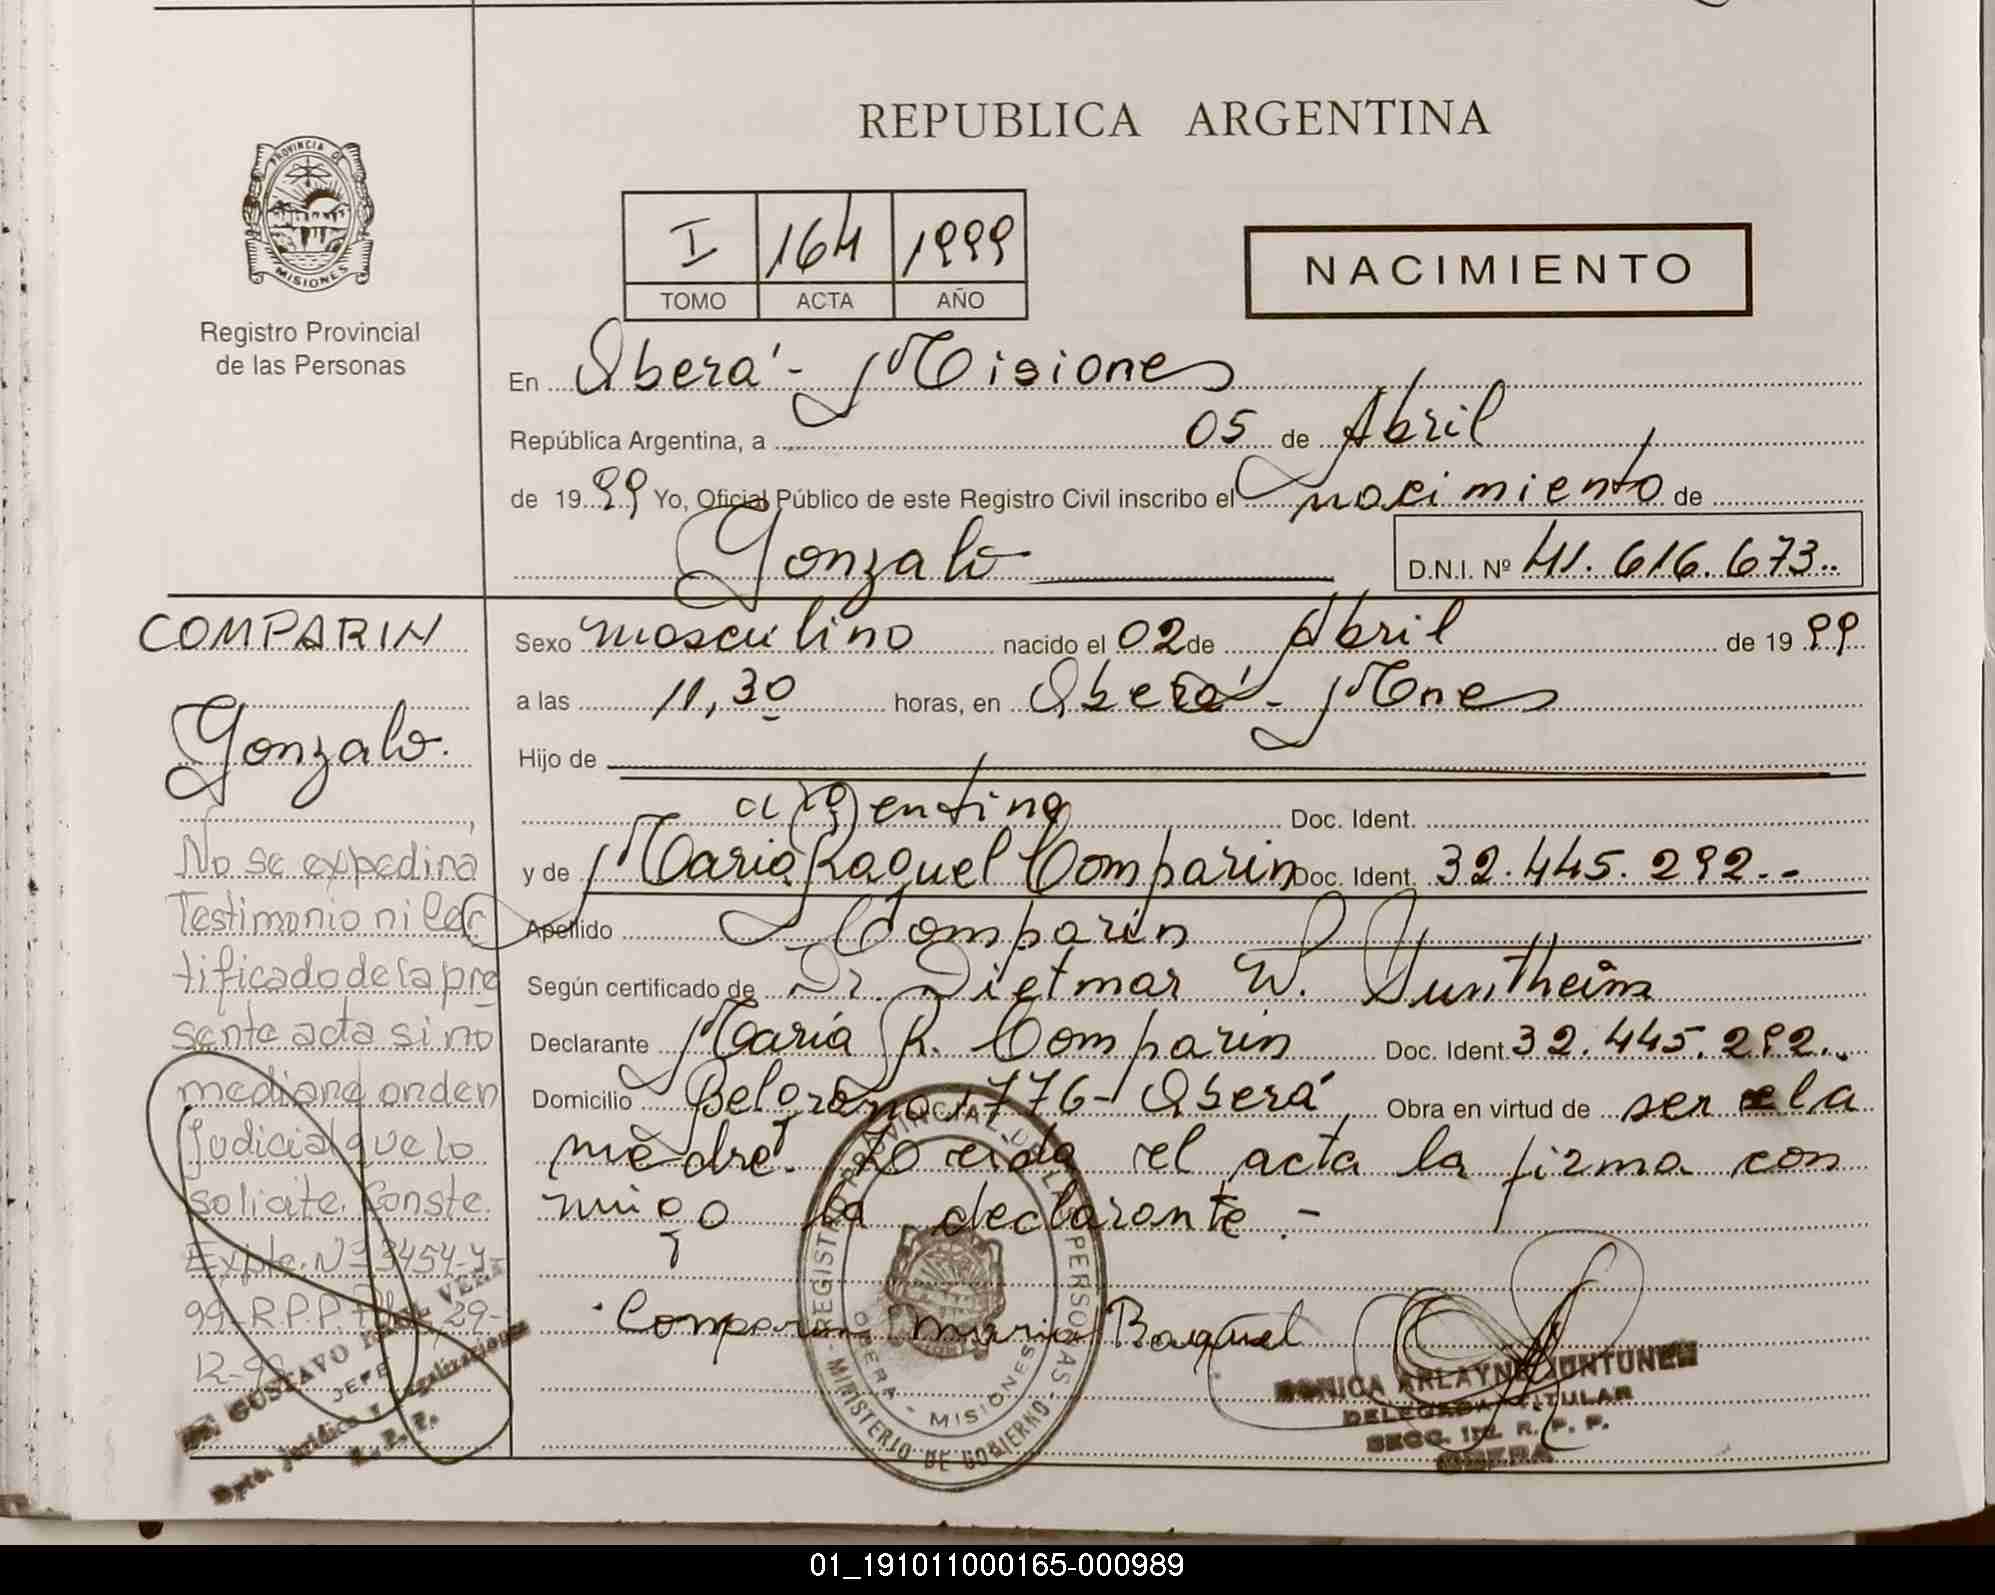 REPUBLICA ARGENTINA
PROVINCIA DE
MISIONES
Registro Provincial
de las Personas
I 164 1999
TOMO ACTA AÑO
NACIMIENTO
En Oberá - Misiones
República Argentina, a 05 de Abril
de 1999 Yo, Oficial Público de este Registro Civil inscribo el nacimiento de
Gonzalo
D.N.I. Nº 41.616.673..
COMPARIN
Gonzalo.
Sexo masculino nacido el 02 de Abril de 1999
a las 11,30 horas, en Oberá - Mnes
Hijo de
argentina Doc. Ident.
y de María Raquel Comparin Doc. Ident. 32.445.292.-
Apellido Comparin
Según certificado de Dr. Dietmar W. Suntheim
Declarante María R. Comparin Doc. Ident. 32.445.292..
Domicilio Belgrano 1776 - Oberá Obra en virtud de ser la
madre. Leida el acta la firma con
migo la declarante.-
Comparin Maria Raquel
No se expedira
Testimonio ni Cer
tificado de la pre
sente acta si no
mediane orden
Judicial que lo
solicite. Conste.
Expte. Nº 3454-Y-
99-R.P.P. 29-
12-99
GUSTAVO VERA
JEFE
Dpto. Jurídico y Legalizaciones
R. P. P.
REGISTRO PROVINCIAL DE LAS PERSONAS
OBERA - MISIONES
MINISTERIO DE GOBIERNO
MONICA ARLAYNE
DELEGADA TITULAR
SECC. 1ra. R. P. P.
OBERA
01_191011000165-000989